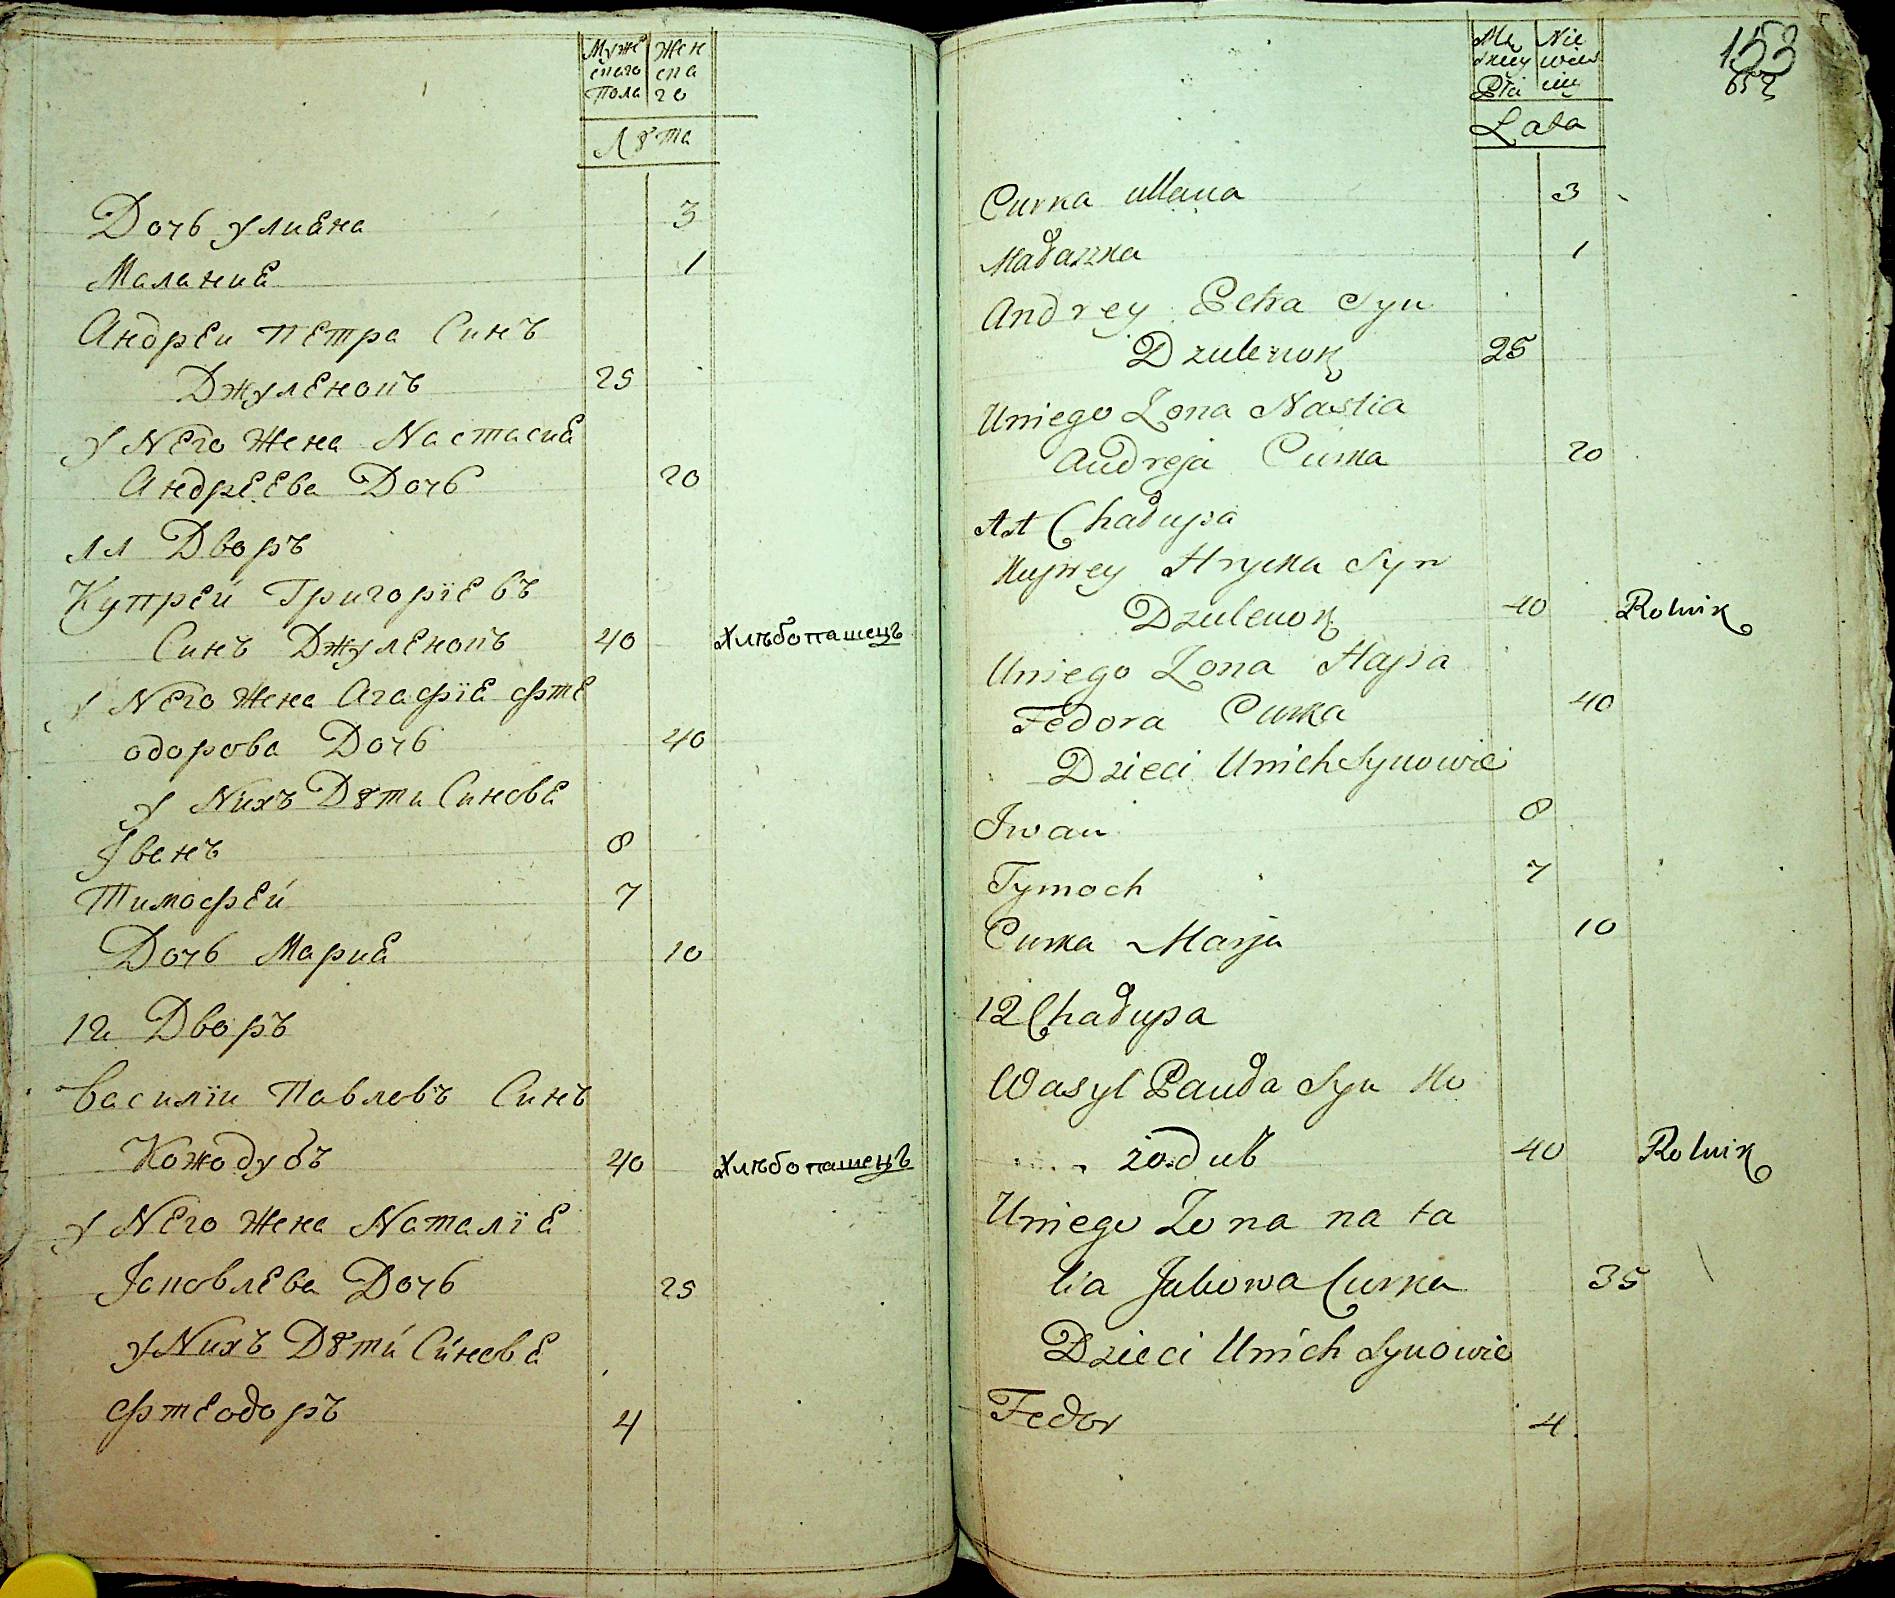 Мужескаго Пола Женскаго
Лѣта
Дочь Улиана 3
Маланиа 1
Андрей Петра Синъ
Джуленокъ 25
У Него Жена Настасиа
Андреева Дочь 20
11 Дворъ
Купрей Григорїевъ
Синъ Джуленокъ 40 Хлѣбопашецъ
У Него Жена Агафїа Фте
одорова Дочь 40
У Нихъ Дѣти Синова
Іванъ 8
Тимофей 7
Дочь Мариа 10
12 Дворъ
Василїи Павловъ Синъ
Кожодубъ 40 Хлѣбопашецъ
У Него Жена Наталїа
Іаковлева Дочь 25
У Нихъ Дѣти Синова
Фтеодоръ 4
153
Lata
Curka Ullana 3
Małaszka 1
Andrey Petra Syn
Dzulenok 25
Uniego Zona Nastia
Andreja Curka 20
11 Chałupa
Kuprey Hrycka Syn
Dzulenok 40 Rolnik
Uniego Zona Hapa
Fedora Curka 40
Dzieci Unich Synowie
Iwan 8
Tymoch 7
Curka Marja 10
12 Chałupa
Wasyl Pauła Syn Ko
zodub 40 Rolnik
Uniego Zona nata
lia Jakowa Curka 35
Dzieci Unich Synowie
Fedor 4